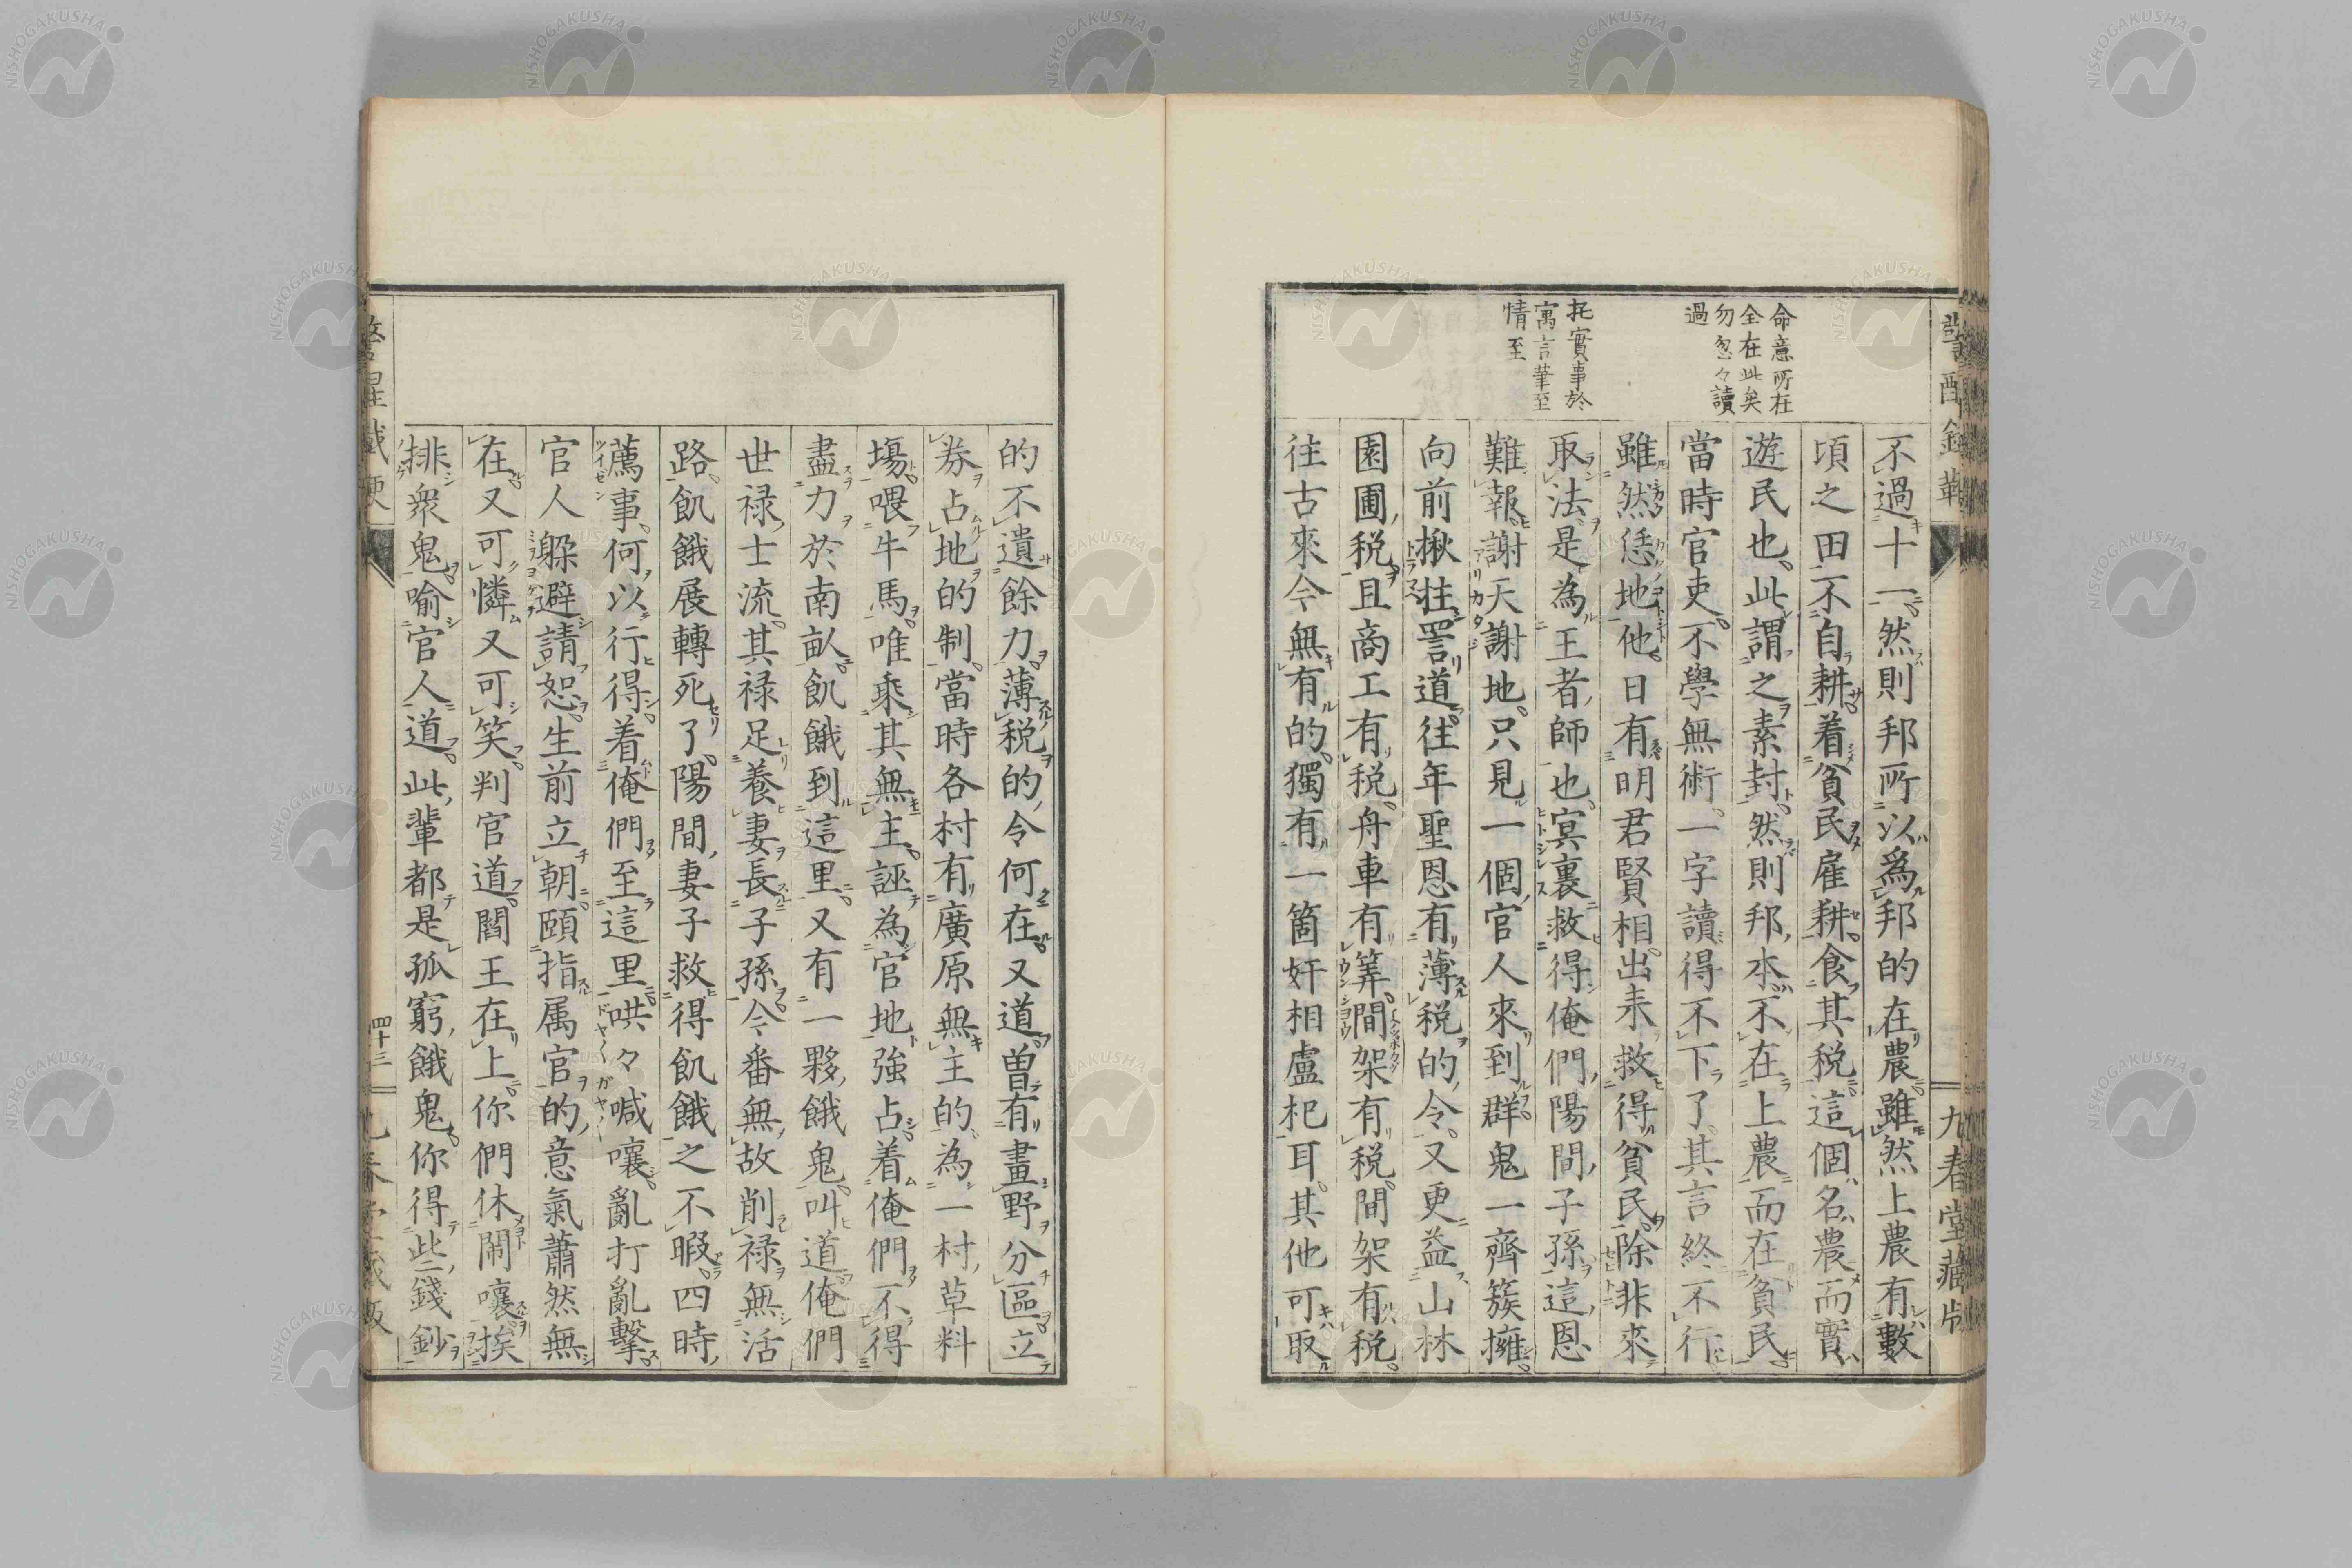 命意所在
全在此矣
勿忽々讀
過
托實事於
寓言華至
情至
不過十一。然則邦所以爲邦的在農。雖然上農有數
頃之田、不自耕。着貧民雇耕。食其税。這個名農而實
遊民也。此謂之素封。然則邦本不在上農而在貧民
當時官吏。不學無術。一字讀得不下了。其言終不行
雖然恁地他。日有明君賢相。出来救得貧民。除非來
取法。是為王者師也。冥裏救得俺們陽間子孫。這恩
難報。謝天謝地。只見一個官人來到。群鬼一齊簇擁
向前揪拄詈道。徃年聖恩有薄税的。今又更益山林
園圃税。且商工有税。舟車有筭。間架有税。間架有税。
往古來今無有的。獨有一箇奸相盧杞耳。其他可取
的不遺餘力。薄税的今何在。又道。曽有畫野分區。立
券占地的制。當時各村有廣原無主的。為一村草料
塲。喂牛馬。唯乘其無主。誣為官地強占着。俺們不得
盡力於南畝。飢餓到這里。又有一夥餓鬼。叫道。俺們
世禄士流。其禄足養妻長子孫。今番無故削禄。無活
路。飢餓展轉死了。陽間妻子救得飢餓之不暇。四時
薦事。何以行得。着俺們至這里。哄々喊嚷。亂打亂擊。
官人躱避請恕。生前立朝。頤指属官的意氣蕭然無
在。又可憐又可笑。判官道。閻王在上。你們休閙嚷。挨
排衆鬼。喻官人道。此輩都是孤窮餓鬼。你得些錢鈔
四十三
九春堂藏版